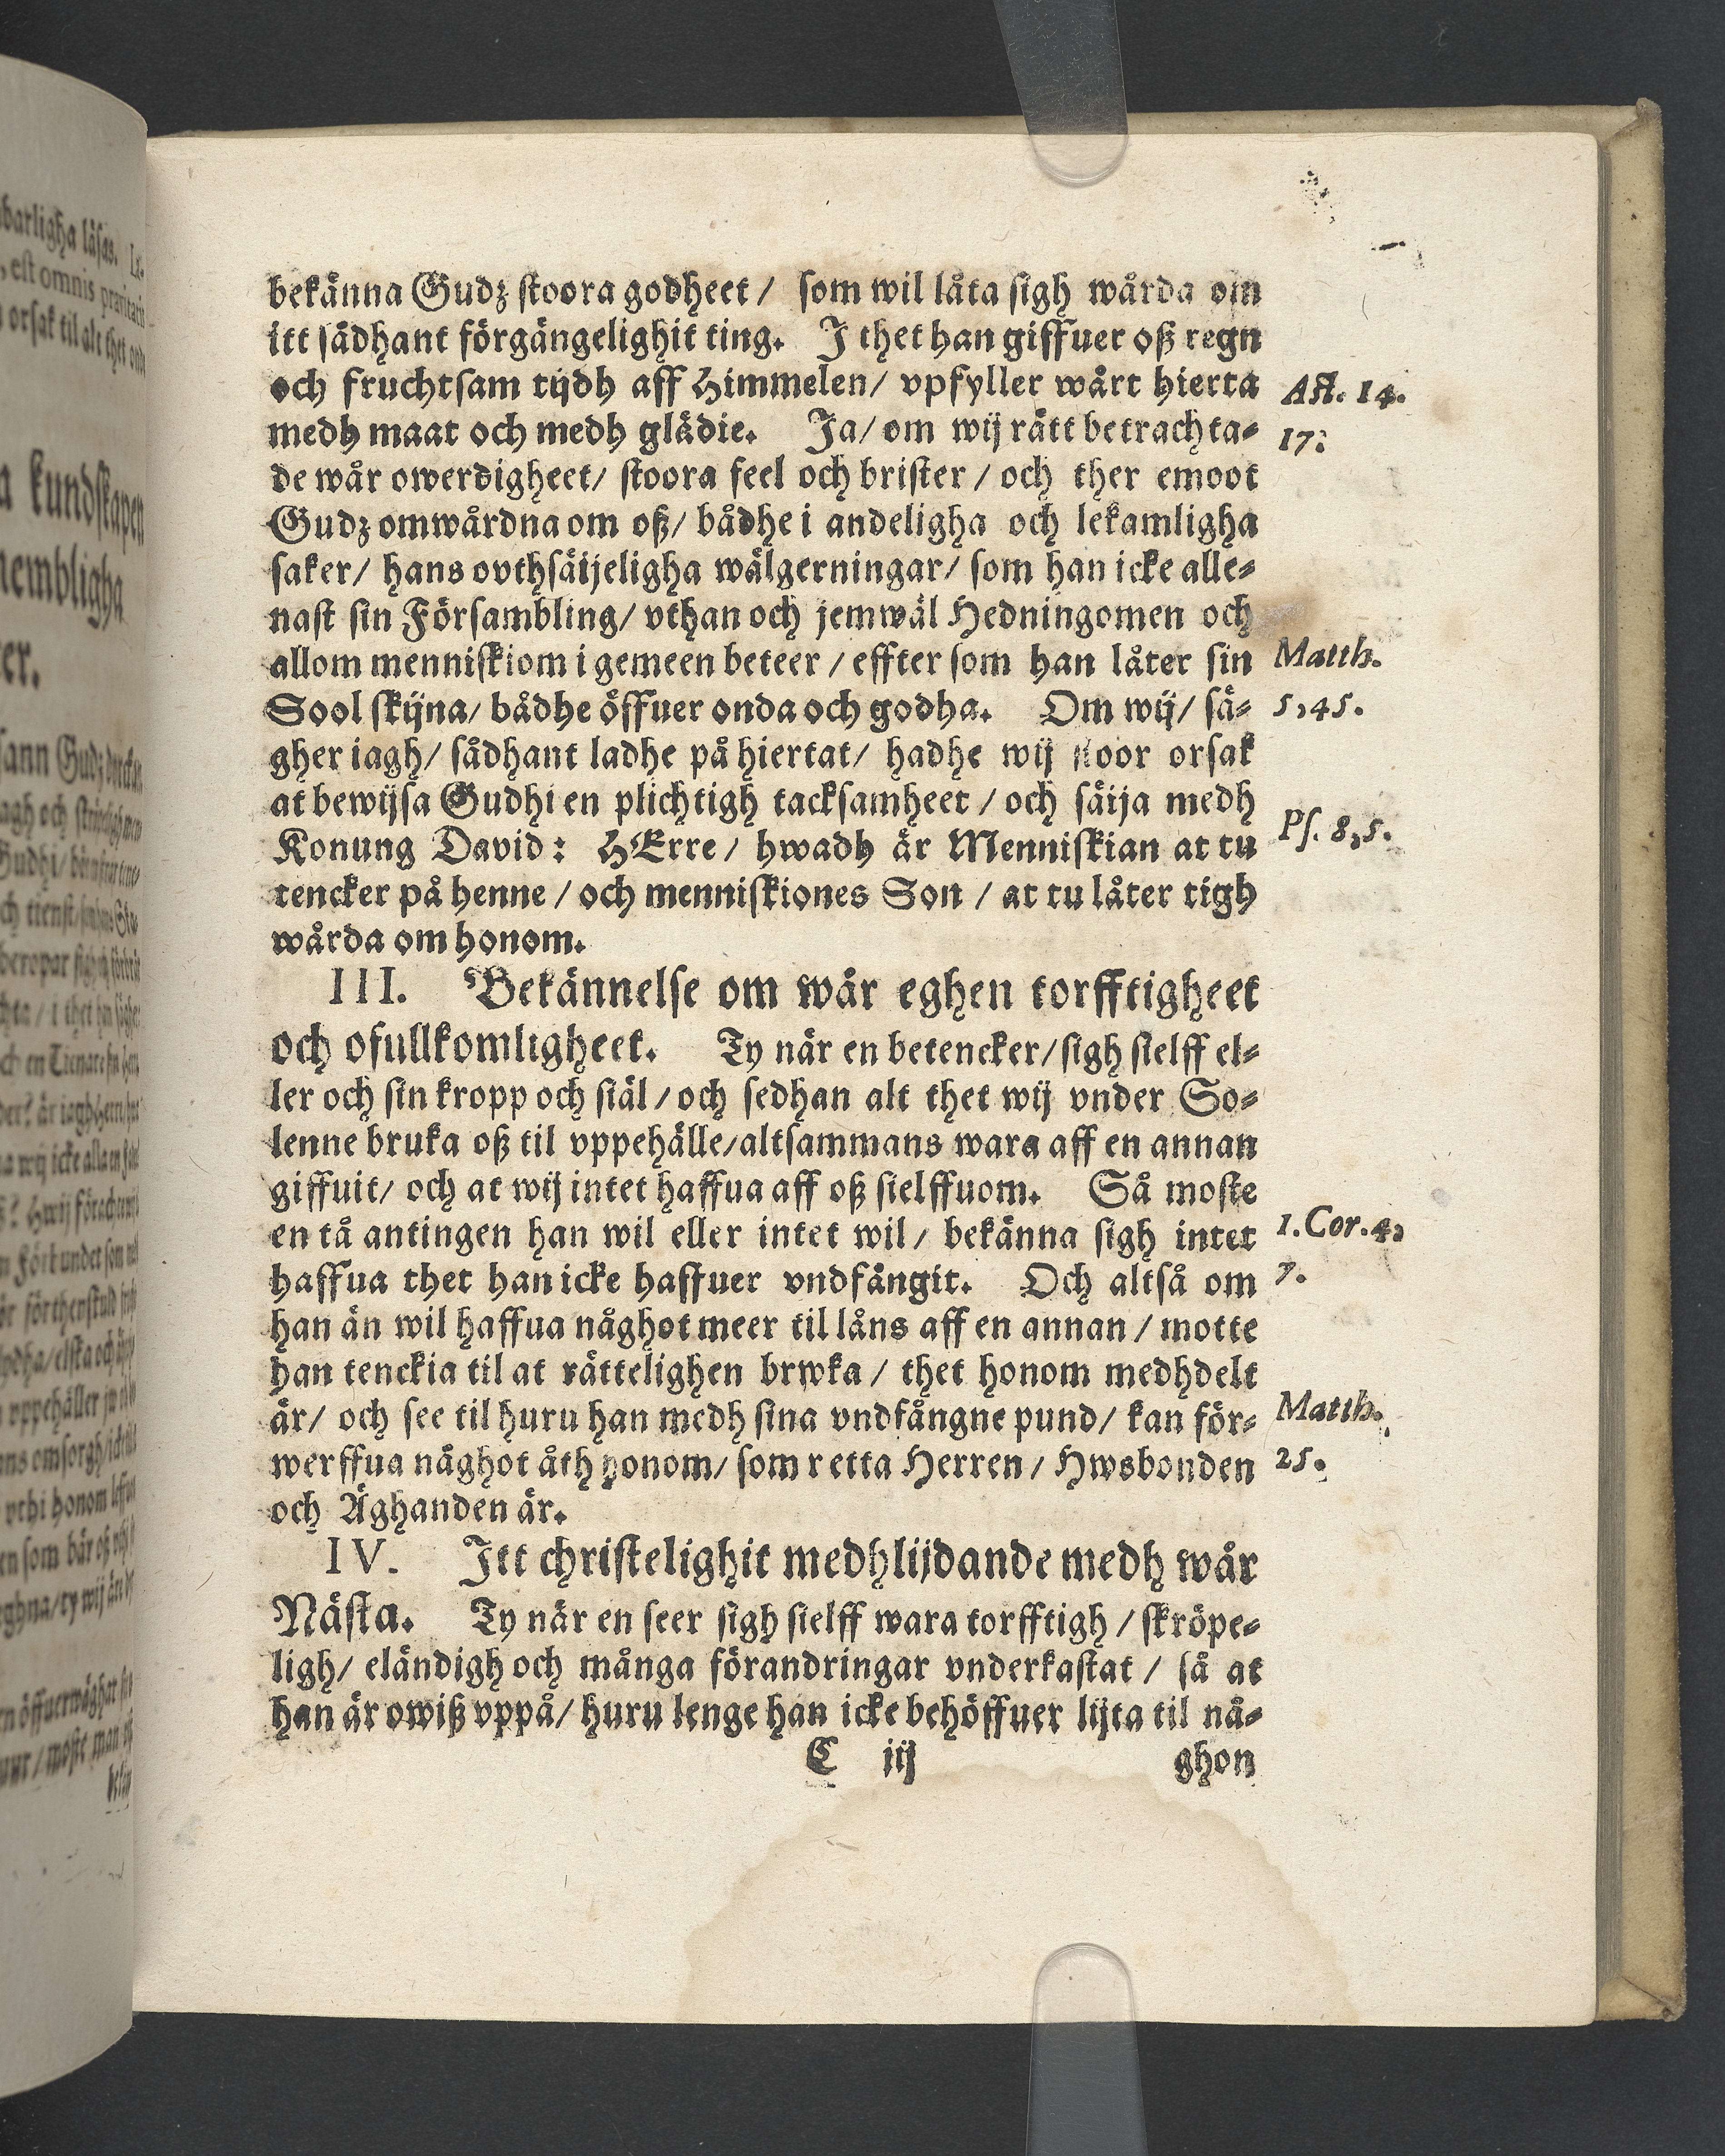 bekänna Gudz stoora godheet / som wil låta sigh wårda om
itt sådhant förgängelighit ting. J thet han giffuer oß regn
och fruchtsam tijdh aff Himmelen/ vpfyller wårt hierta
Act. 14.
medh maat och medh glädie. Ja/ om wij rätt betrachta-
17.
de wår owerdigheet/ stoora feel och brister / och ther emoot
Gudz omwårdna om oß/ bådhe i andeligha och lekamligha
saker/ hans ovthsäijeligha wälgerningar/ som han icke alle-
nast sin Försambling/ vthan och jemwäl Hedningomen och
allom menniskiom i gemeen beteer / effter som han låter sin
Matth.
Sool skijna/ bådhe öffuer onda och godha. Om wij/ sä-
5,45.
gher iagh/ sådhant ladhe på hiertat/ hadhe wij stoor orsak
at bewijsa Gudhi en plichtigh tacksamheet / och säija medh
Konung David: HErre / hwadh är Menniskian at tu
Ps. 8,5.
tencker på henne / och menniskiones Son / at tu låter tigh
wårda om honom.
III. Bekännelse om wår eghen torfftigheet
och ofullkomligheet. Ty när en betencker/ sigh sielff el-
ler och sin kropp och siäl / och sedhan alt thet wij vnder So-
lenne bruka oß til vppehälle/ altsammans wara aff en annan
giffuit/ och at wij intet haffua aff oß sielffuom. Så moste
en tå antingen han wil eller intet wil / bekänna sigh intet
1. Cor. 4,
haffua thet han icke haffuer vndfångit. Och altså om
7.
han än wil haffua någhot meer til låns aff en annan / motte
han tenckia til at rättelighen brwka / thet honom medhdelt
är/ och see til huru han medh sina vndfångne pund/ kan för-
Matth.
werffua någhot åth honom/ som retta Herren / Hwsbonden
25.
och Äghanden är.
IV. Jtt christelighit medhlijdande medh wår
Nästa. Ty när en seer sigh sielff wara torfftigh / skröpe-
ligh/ eländigh och många förandringar vnderkastat / så at
han är owiß vppå/ huru lenge han icke behöffuer lijta til nå-
C iij
ghon